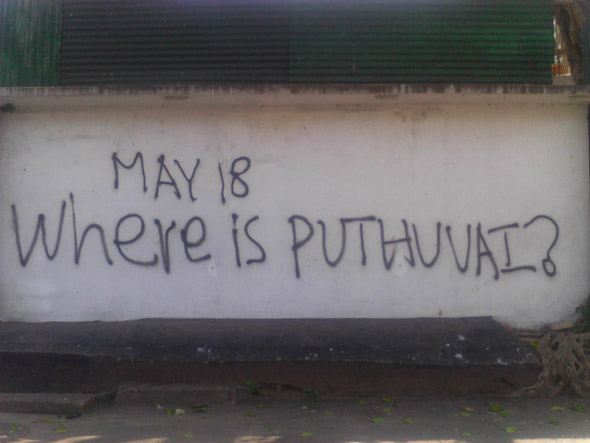 MAY 18
Where is PUTHUVAI?